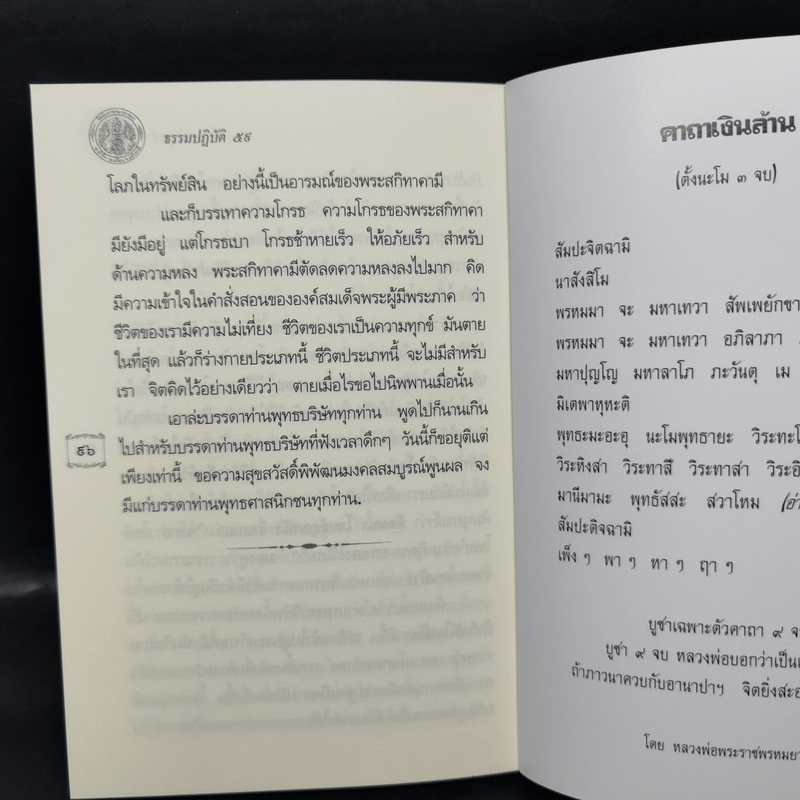 ธรรมปฏิบัติ ๕๙
โลภในทรัพย์สิน อย่างนี้เป็นอารมณ์ของพระสกิทาคามี
และก็บรรเทาความโกรธ ความโกรธของพระสกิทาคา
มียังมีอยู่ แต่โกรธเบา โกรธช้าหายเร็ว ให้อภัยเร็ว สำหรับ
ด้านความหลง พระสกิทาคามีตัดลดความหลงลงไปมาก คิด
มีความเข้าใจในคำสั่งสอนขององค์สมเด็จพระผู้มีพระภาค ว่า
ชีวิตของเรามีความไม่เที่ยง ชีวิตของเราเป็นความทุกข์ มันตาย
ในที่สุด แล้วก็ร่างกายประเภทนี้ ชีวิตประเภทนี้ จะไม่มีสำหรับ
เรา จิตคิดไว้อย่างเดียวว่า ตายเมื่อไรขอไปนิพพานเมื่อนั้น
เอาล่ะบรรดาท่านพุทธบริษัททุกท่าน พูดไปก็นานเกิน
ไปสำหรับบรรดาท่านพุทธบริษัทที่ฟังเวลาดึกๆ วันนี้ก็ขอยุติแต่
เพียงเท่านี้ ขอความสุขสวัสดิ์พิพัฒนมงคลสมบูรณ์พูนผล จง
มีแก่บรรดาท่านพุทธศาสนิกชนทุกท่าน.
๕๖
คาถาเงินล้าน
(ตั้งนะโม ๓ จบ)
สัมปะจิตฉามิ
นาสังสิโม
พรหมมา จะ มหาเทวา สัพเพยักขา
พรหมมา จะ มหาเทวา อภิลาภา
มหาปุญโญ มหาลาโภ ภะวันตุ เม
มิเตพาหุหะติ
พุทธะมะอะอุ นะโมพุทธายะ วิระทะโ
วิระหิงสา วิระทาสี วิระทาสา วิระอิ
มานีมามะ พุทธัสสะ สวาโหม (อ่า
สัมปะติจฉามิ
เพ็ง ๆ พา ๆ หา ๆ ฤา ๆ
บูชาเฉพาะตัวคาถา ๙ จบ
บูชา ๙ จบ หลวงพ่อบอกว่าเป็น
ถ้าภาวนาควบกับอานาปาฯ จิตยิ่งสะ
โดย หลวงพ่อพระราชพรหมยา